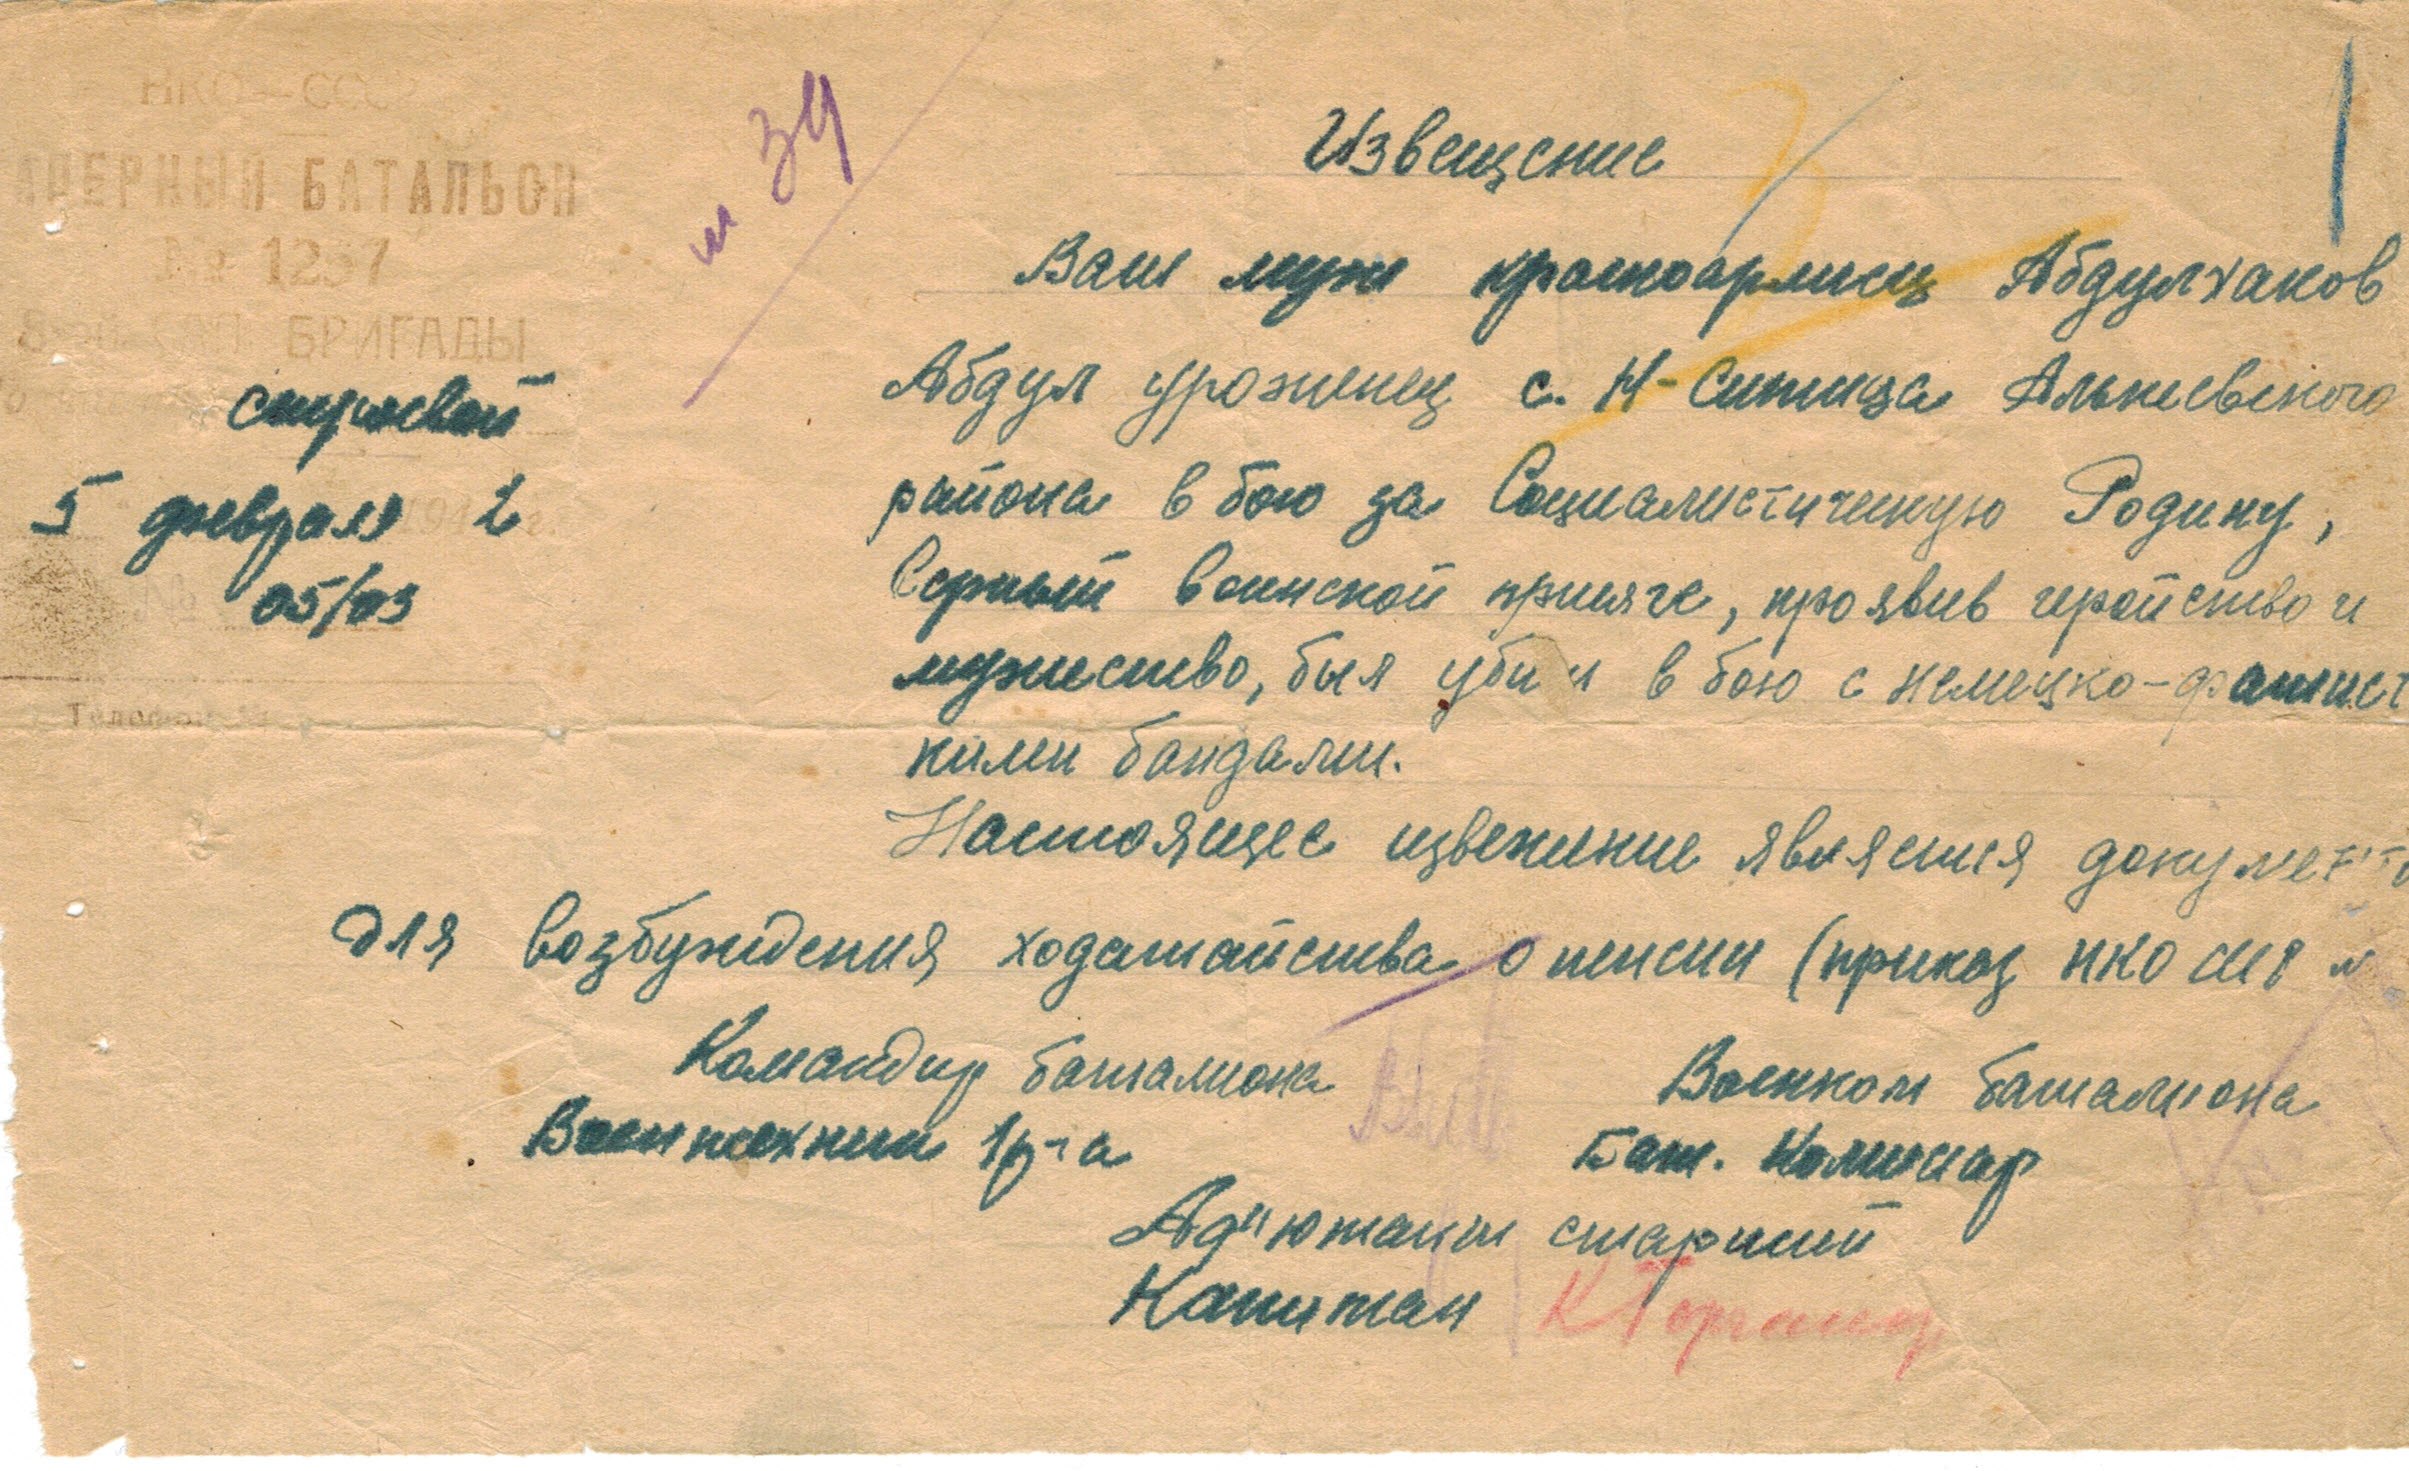 НКО—СССР
АПЕРНЫЙ БАТАЛЬОН
№ 1257
БРИГАДЫ
5 февраля 1942 г.
№ 05/03
Телефон №
39
Извещение
Ваш муж красноармеец Абдулхаков
Абдул уроженец с. Н-Ситица Алькеевского
района в бою за Социалистическую Родину,
верный воинской присяге, проявив геройство и
мужество, был убит в бою с немецко-фашист
кими бандами.
Настоящее извещение является документо
для возбуждения ходатайства о пенсии (приказ НКО СССР №
Командир баталиона
Воентехник 1 р-га
Военком баталиона
Бат. Комиссар
Ад"ютант старший
Капитан